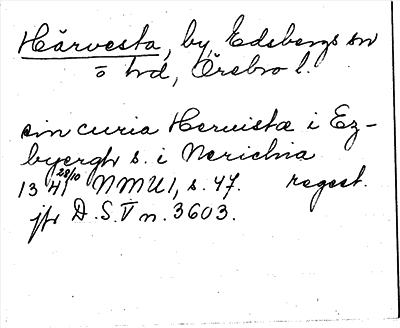 Härvesta, by, Edsbergs sn
o hd, Örebro l.
in curia Hervistæ i Ez-
byergh s. i Nerichia
13 28/10 41 NMU 1, s. 47. regest.
jfr D.S. V n. 3603.